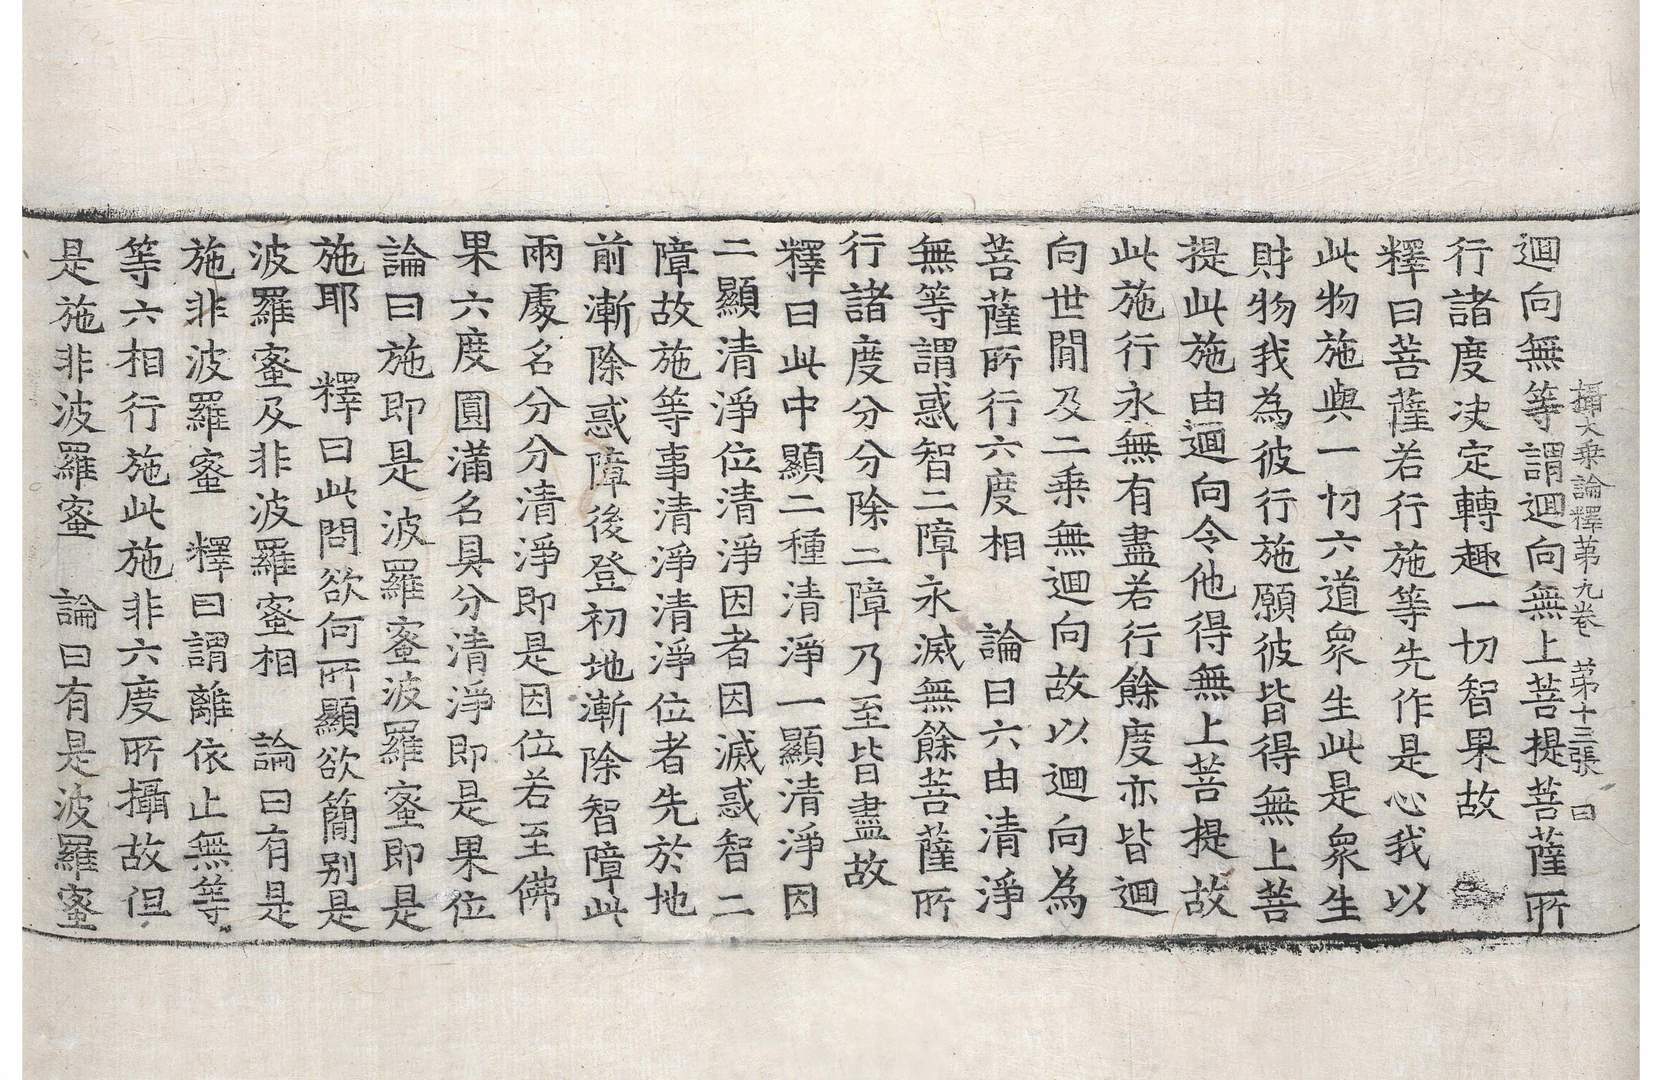 攝大乘論釋第九卷 第十三張 曰
迴向無等謂迴向無上菩提菩薩所
行諸度决定轉趣一切智果故
釋曰菩薩若行施等先作是心我以
此物施與一切六道衆生此是衆生
財物我為彼行施願彼皆得無上菩
提此施由迴向令他得無上菩提故
此施行永無有盡若行餘度亦皆迴
向世間及二乘無迴向故以迴向為
菩薩所行六度相 論曰六由清淨
無等謂惑智二障永滅無餘菩薩所
行諸度分分除二障乃至皆盡故
釋曰此中顯二種清淨一顯清淨因
二顯清淨位清淨因者因滅惑智二
障故施等事清淨清淨位者先於地
前漸除惑障後登初地漸除智障此
兩處名分分清淨即是因位若至佛
果六度圓滿名具分清淨即是果位
論曰施即是波羅蜜波羅蜜即是
施耶 釋曰此問欲何所顯欲簡別是
波羅蜜及非波羅蜜相 論曰有是
施非波羅蜜 釋曰謂離依止無等
等六相行施此施非六度所攝故但
是施非波羅蜜 論曰有是波羅蜜